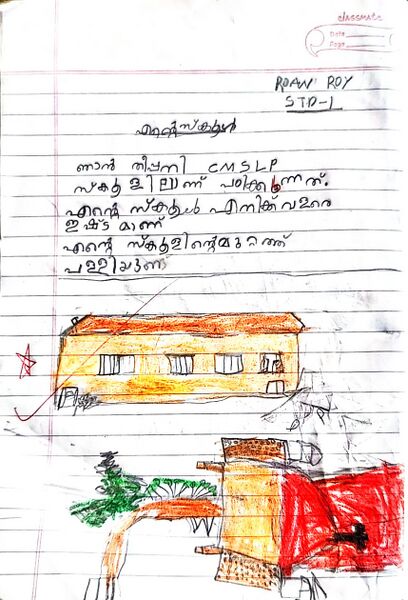 classmate
Date
Page
ROAN ROY
STD-1
എന്റെ സ്കൂൾ
ഞാൻ തീപ്പനി CMSLP
സ്കൂളിലാണ് പഠിക്കുന്നത്.
എന്റെ സ്കൂൾ എനിക്ക് വളരെ
ഇഷ്ടമാണ്
എന്റെ സ്കൂളിന്റെ മുറ്റത്ത്
പള്ളിയുണ്ട്